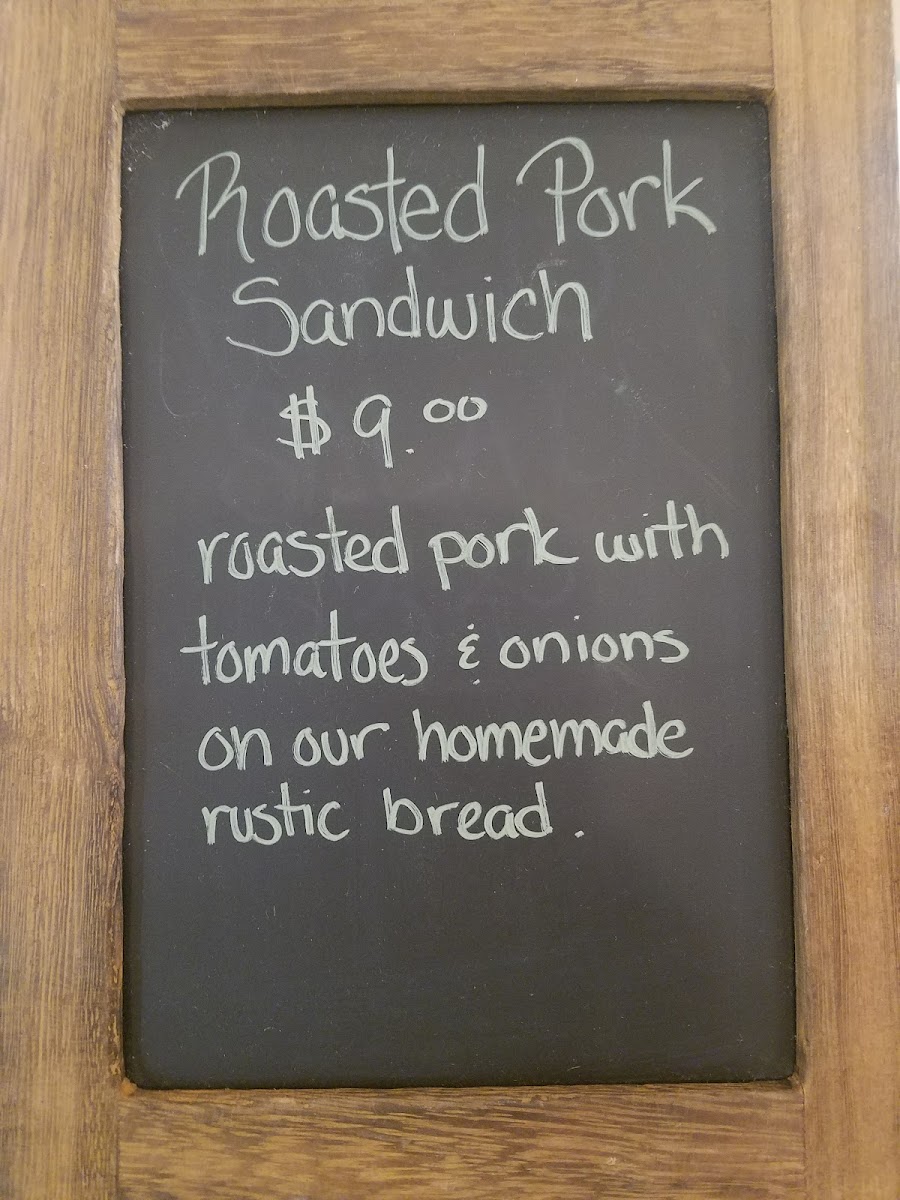 Roasted Pork
Sandwich
$9.00
roasted pork with
tomatoes & onions
on our homemade
rustic bread.